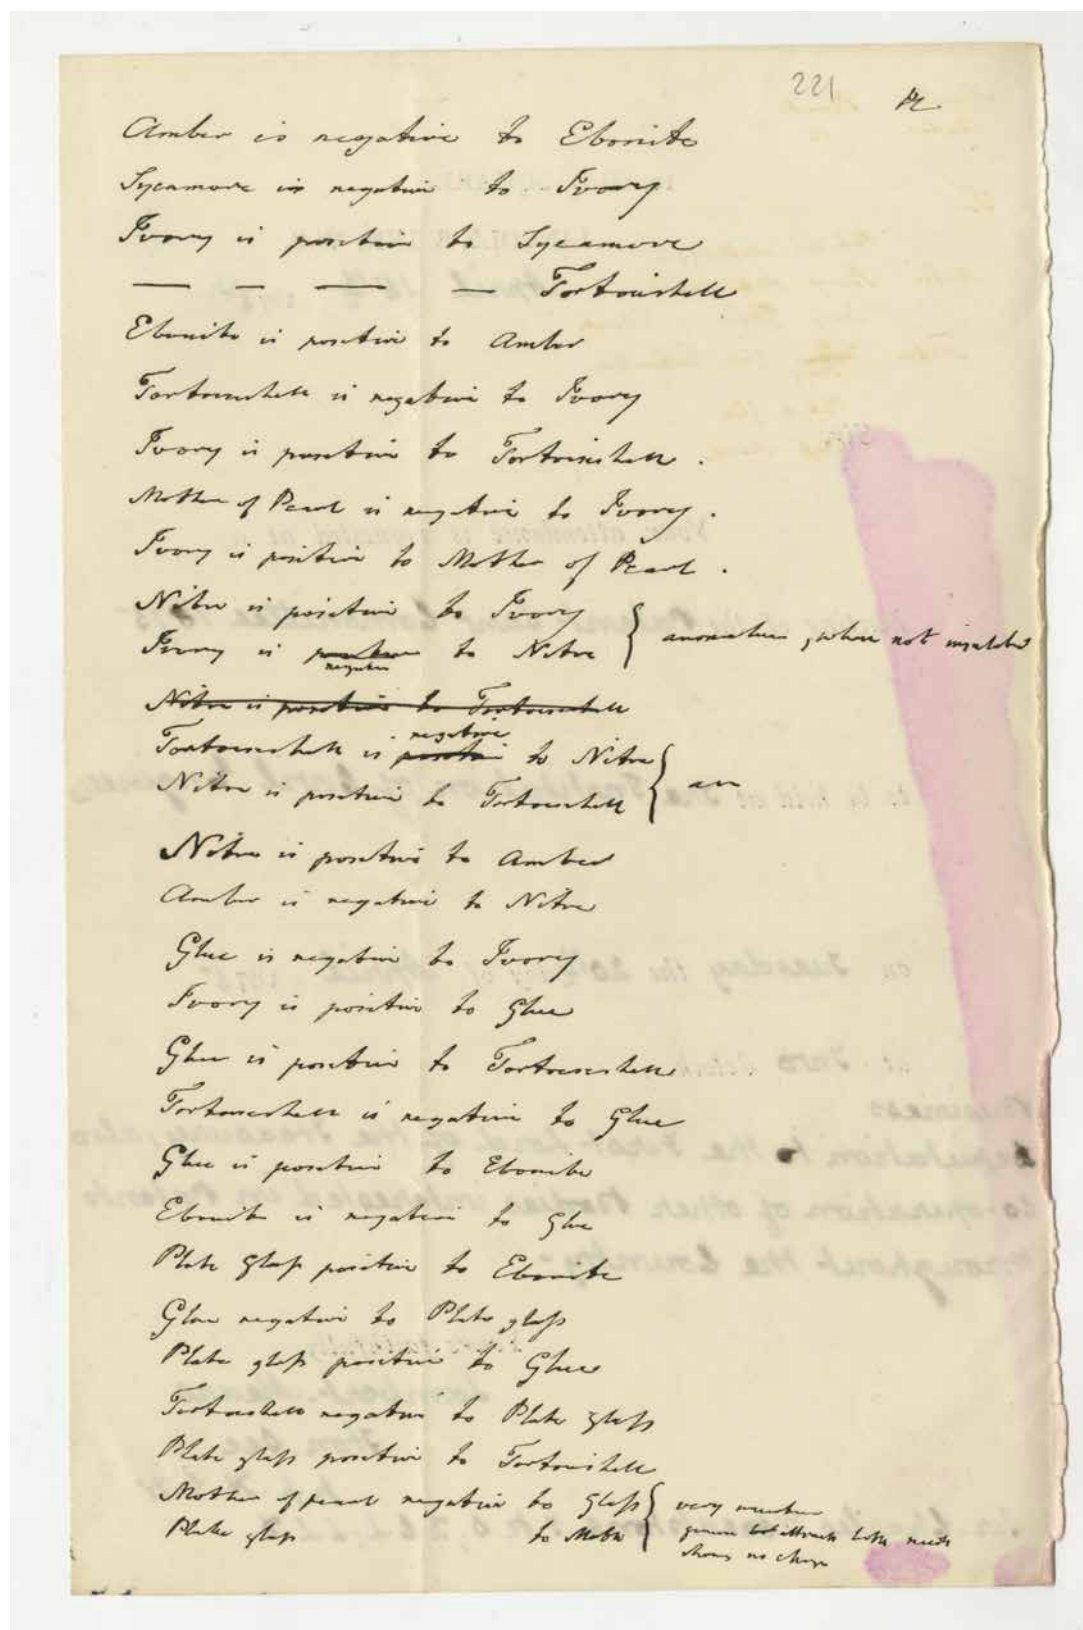 221
Amber is negative to Ebonite
Sycamore is negative to Ivory
Ivory is positive to Sycamore
— — — — Tortoishell
Ebonite is positive to Amber
Tortoiseshell is negative to Ivory
Ivory is positive to Tortoiseshell .
Mother of Pearl is negative to Ivory .
Ivory is positive to Mother of Pearl .
Nitre is positive to Ivory
Ivory is positive negative to Nitre
anomalous , when not insulated
Nitre is positive to Tortoiseshell
Tortoiseshell is positive negative to Nitre
Nitre is positive to Tortoiseshell
an
Nitre is positive to Amber
Amber is negative to Nitre
Glue is negative to Ivory
Ivory is positive to Glue
Glue is positive to Tortoiseshell
Tortoiseshell is negative to Glue
Glue is positive to Ebonite
Ebonite is negative to Glue
Plate glass positive to Ebonite
Glue negative to Plate glass
Plate glass positive to Glue
Tortoishell negative to Plate glass
Plate glass positive to Tortoishell
Mother of pearl negative to Glass
Plate glass to Moth
very
but attracts both
shows no charge